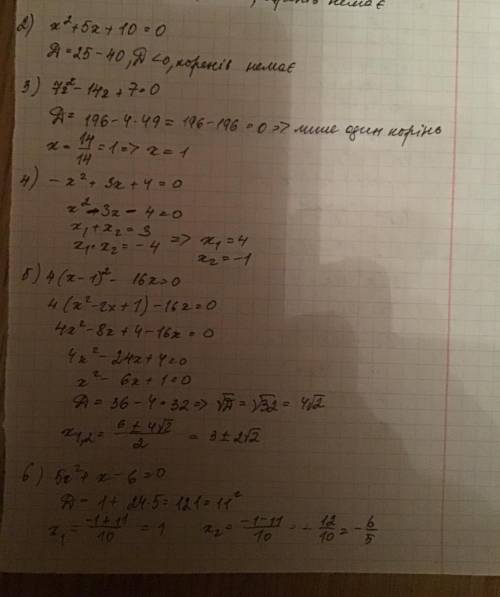 немає
2) x²+5x+10=0
D=25-40, D<0, коренів немає
3) 7x²-14x+7=0
D=196-4·49=196-196=0=> лише один корінь
x=14/14=1=> x=1
4) -x²+3x+4=0
x²-3x-4=0
x₁+x₂=3
x₁·x₂=-4 => x₁=4
x₂=-1
5) 4(x-1)²-16x=0
4(x²-2x+1)-16x=0
4x²-8x+4-16x=0
4x²-24x+4=0
x²-6x+1=0
D=36-4=32=> √D=√32=4√2
x₁,₂=(6±4√2)/2=3±2√2
6) 5x²+x-6=0
D=1+24·5=121=11²
x₁=(-1+11)/10=1 x₂=(-1-11)/10=-12/10=-6/5